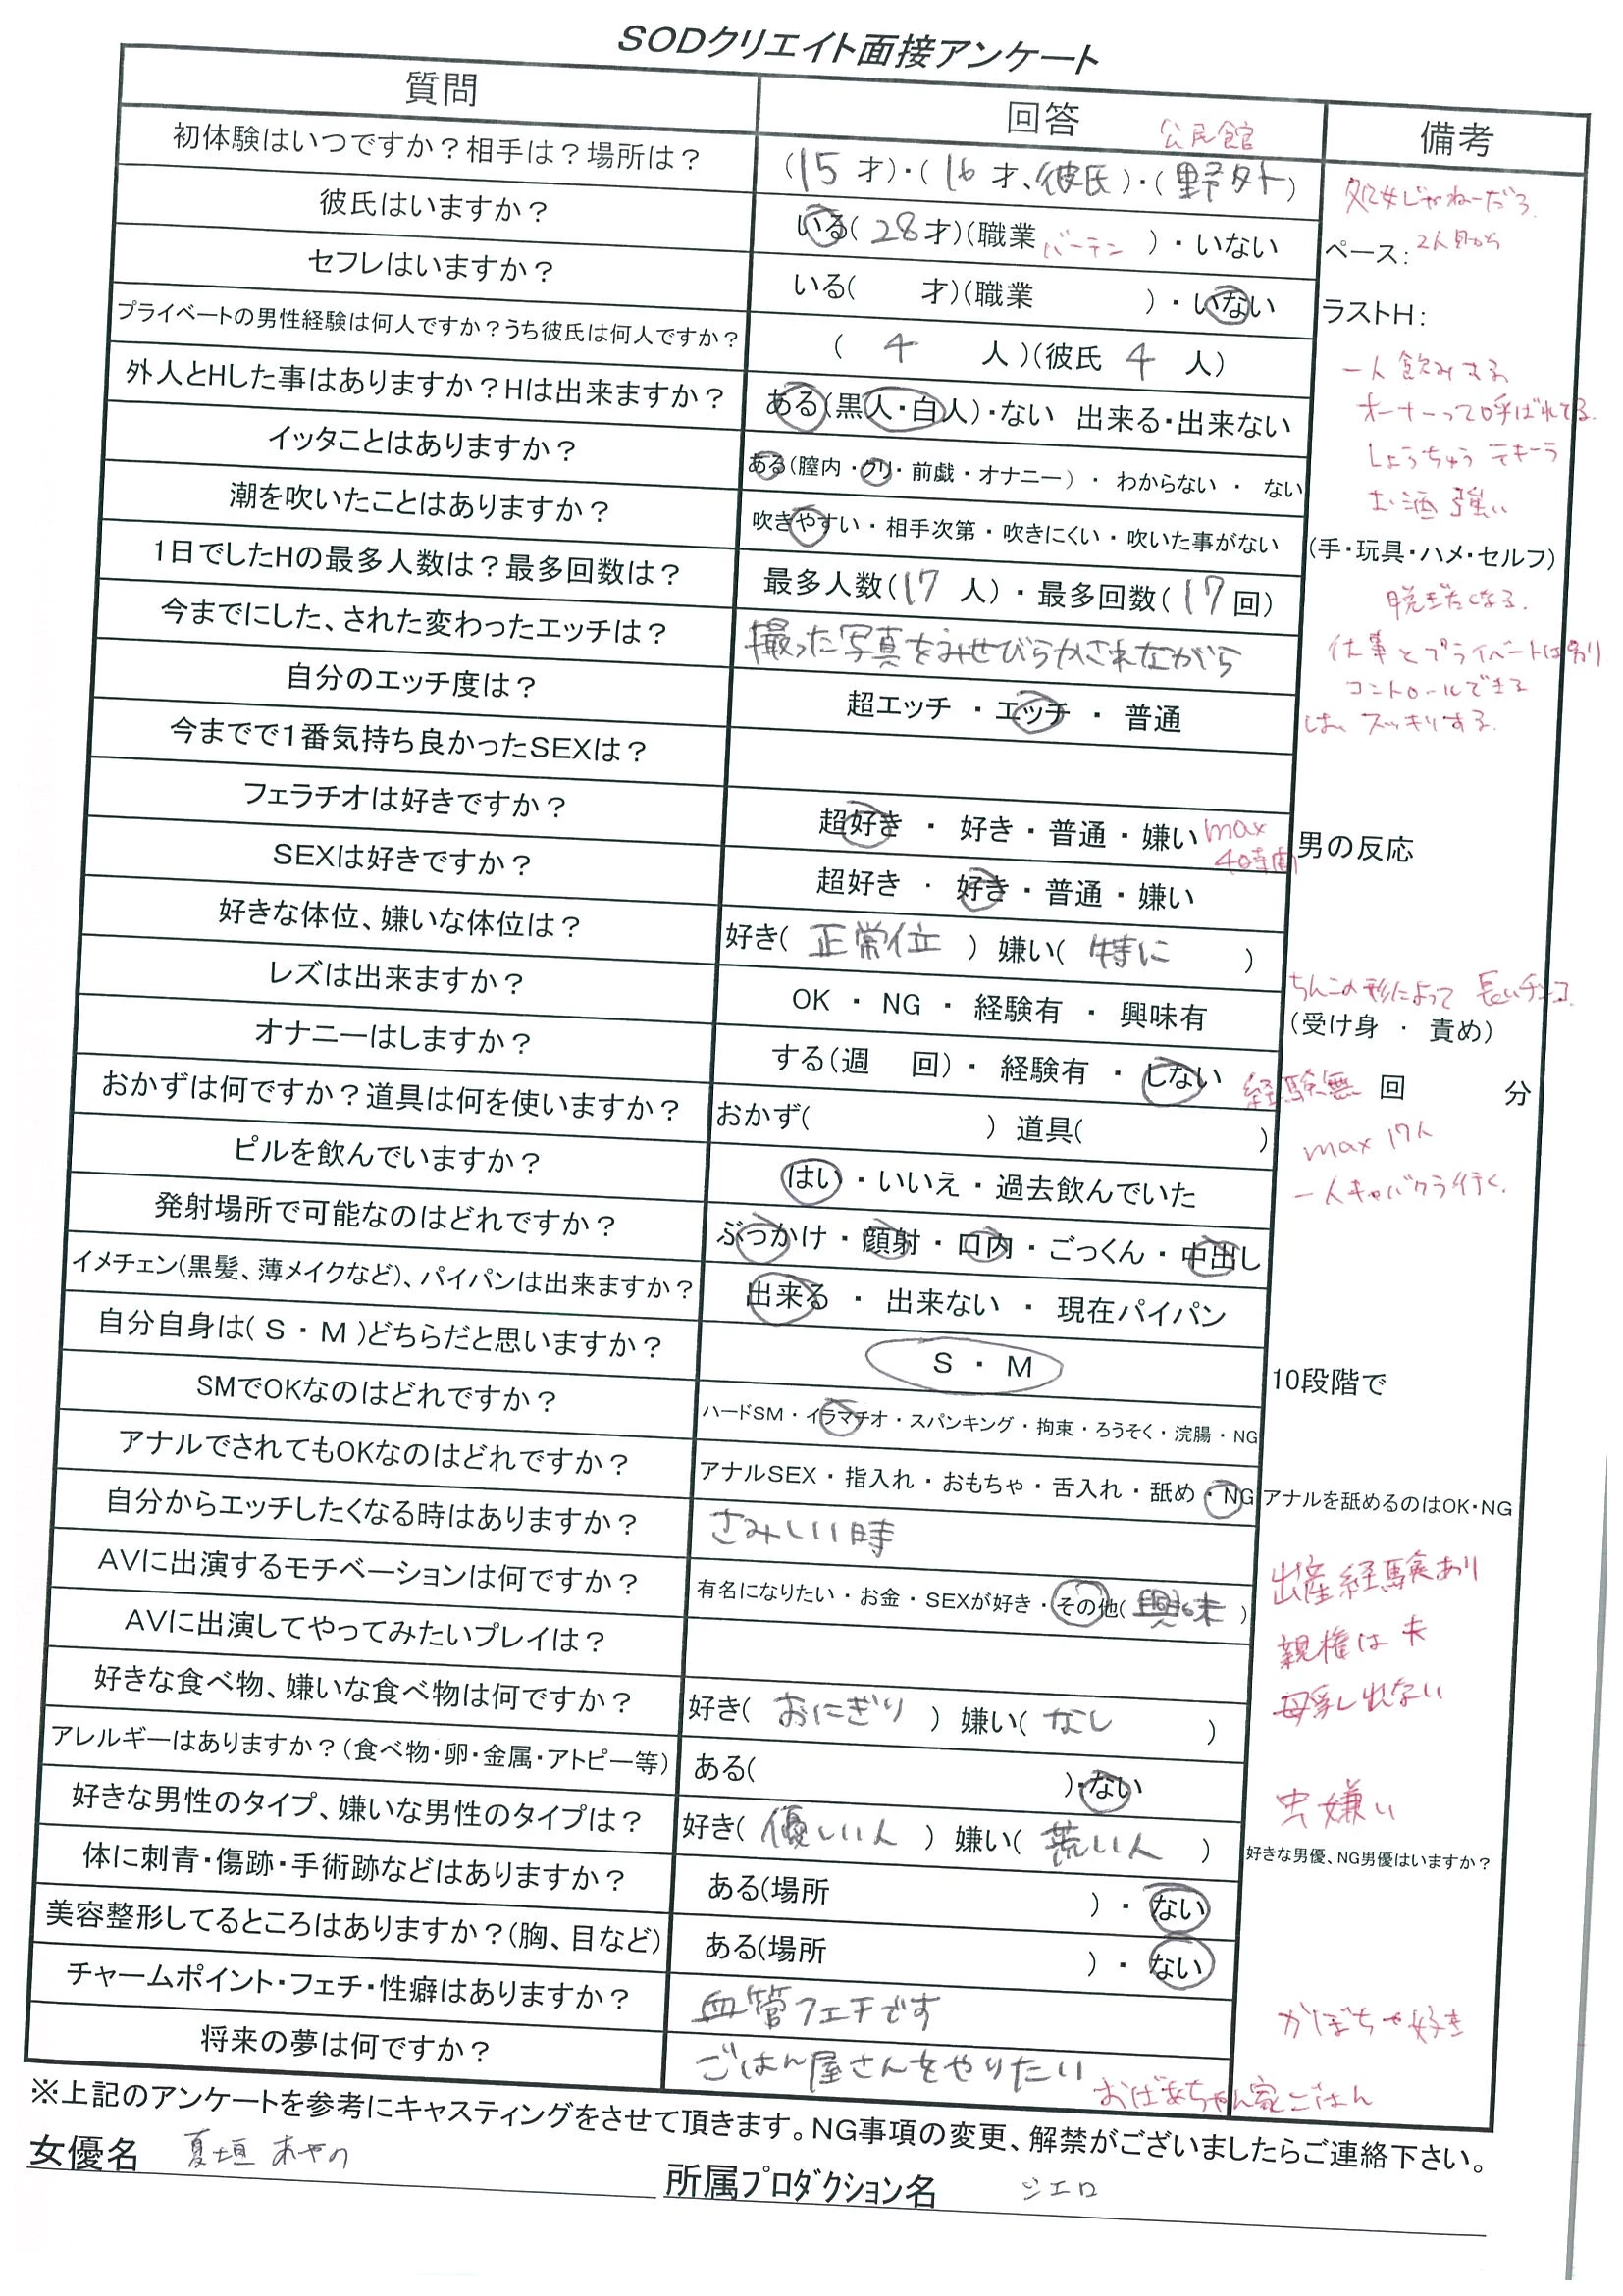 SODクリエイト面接アンケート
質問 回答 備考
初体験はいつですか？相手は？場所は？
彼氏はいますか？ いる(28才)(職業 バーテン )・いない ペース：
セフレはいますか？ いる( 才)(職業 )・いない ラストH：
プライベートの男性経験は何人ですか？うち彼氏は何人ですか？ ( 4 人)(彼氏 4 人)
一人飲みする
外人とHした事はありますか？Hは出来ますか？ ある(黒人・白人)・ない 出来る・出来ない
オーナーって呼ばれてる
イッタことはありますか？ ある(膣内・クリ・前戯・オナニー)・わからない・ない
しょうちゅう テキーラ
お酒 強い
潮を吹いたことはありますか？ 吹きやすい・相手次第・吹きにくい・吹いた事がない (手・玩具・ハメ・セルフ)
1日でしたHの最多人数は？最多回数は？ 最多人数(17 人)・最多回数(17 回)
脱ぎたくなる.
今までにした、された変わったエッチは？ 撮った写真をみせびらかされながら
仕事とプライベートは別り
コントロールできる
自分のエッチ度は？ 超エッチ・エッチ・普通
スッキリする.
今までで1番気持ち良かったSEXは？
フェラチオは好きですか？ 超好き・好き・普通・嫌い max 4時間 男の反応
SEXは好きですか？ 超好き・好き・普通・嫌い
好きな体位、嫌いな体位は？ 好き( 正常位 ) 嫌い( 特に )
ちんこの形によって 長いチンコ.
レズは出来ますか？ OK・NG・経験有・興味有 (受け身・責め)
オナニーはしますか？ する(週 回)・経験有・しない 経験無 回 分
おかずは何ですか？道具は何を使いますか？ おかず( ) 道具( )
max 17人
ピルを飲んでいますか？ はい・いいえ・過去飲んでいた
一人キャバクラ行く.
発射場所で可能なのはどれですか？ ぶっかけ・顔射・口内・ごっくん・中出し
イメチェン(黒髪、薄メイクなど)、パイパンは出来ますか？ 出来る・出来ない・現在パイパン
自分自身は(S・M)どちらだと思いますか？ S・M 10段階で
SMでOKなのはどれですか？ ハードSM・イラマチオ・スパンキング・拘束・ろうそく・浣腸・NG
アナルでされてもOKなのはどれですか？ アナルSEX・指入れ・おもちゃ・舌入れ・舐め・NG アナルを舐めるのはOK・NG
自分からエッチしたくなる時はありますか？ さみしい時
出産経験あり
AVに出演するモチベーションは何ですか？ 有名になりたい・お金・SEXが好き・その他(興味)
親権は夫
AVに出演してやってみたいプレイは？
母乳し出ない
好きな食べ物、嫌いな食べ物は何ですか？ 好き( おにぎり ) 嫌い( なし )
アレルギーはありますか？(食べ物・卵・金属・アトピー等) ある( )・ない
虫嫌い
好きな男性のタイプ、嫌いな男性のタイプは？ 好き( 優しい人 ) 嫌い( 荒い人 ) 好きな男優、NG男優はいますか？
体に刺青・傷跡・手術跡などはありますか？ ある(場所 )・ない
美容整形してるところはありますか？(胸、目など) ある(場所 )・ない
チャームポイント・フェチ・性癖はありますか？ 血管フェチです
かぼちゃ好き
将来の夢は何ですか？ ごはん屋さんをやりたい
おばあちゃん家ごはん
※上記のアンケートを参考にキャスティングをさせて頂きます。NG事項の変更、解禁がございましたらご連絡下さい。
女優名 夏垣 あやの 所属プロダクション名 シエロ